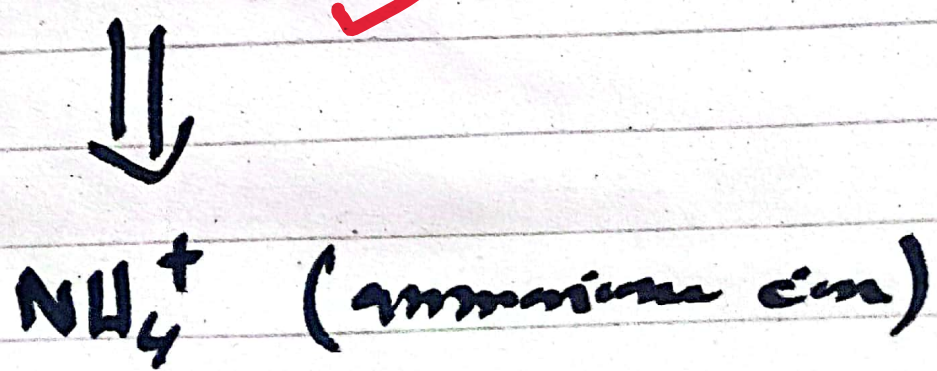 ⇓
NH₄⁺ (ammonium ion)